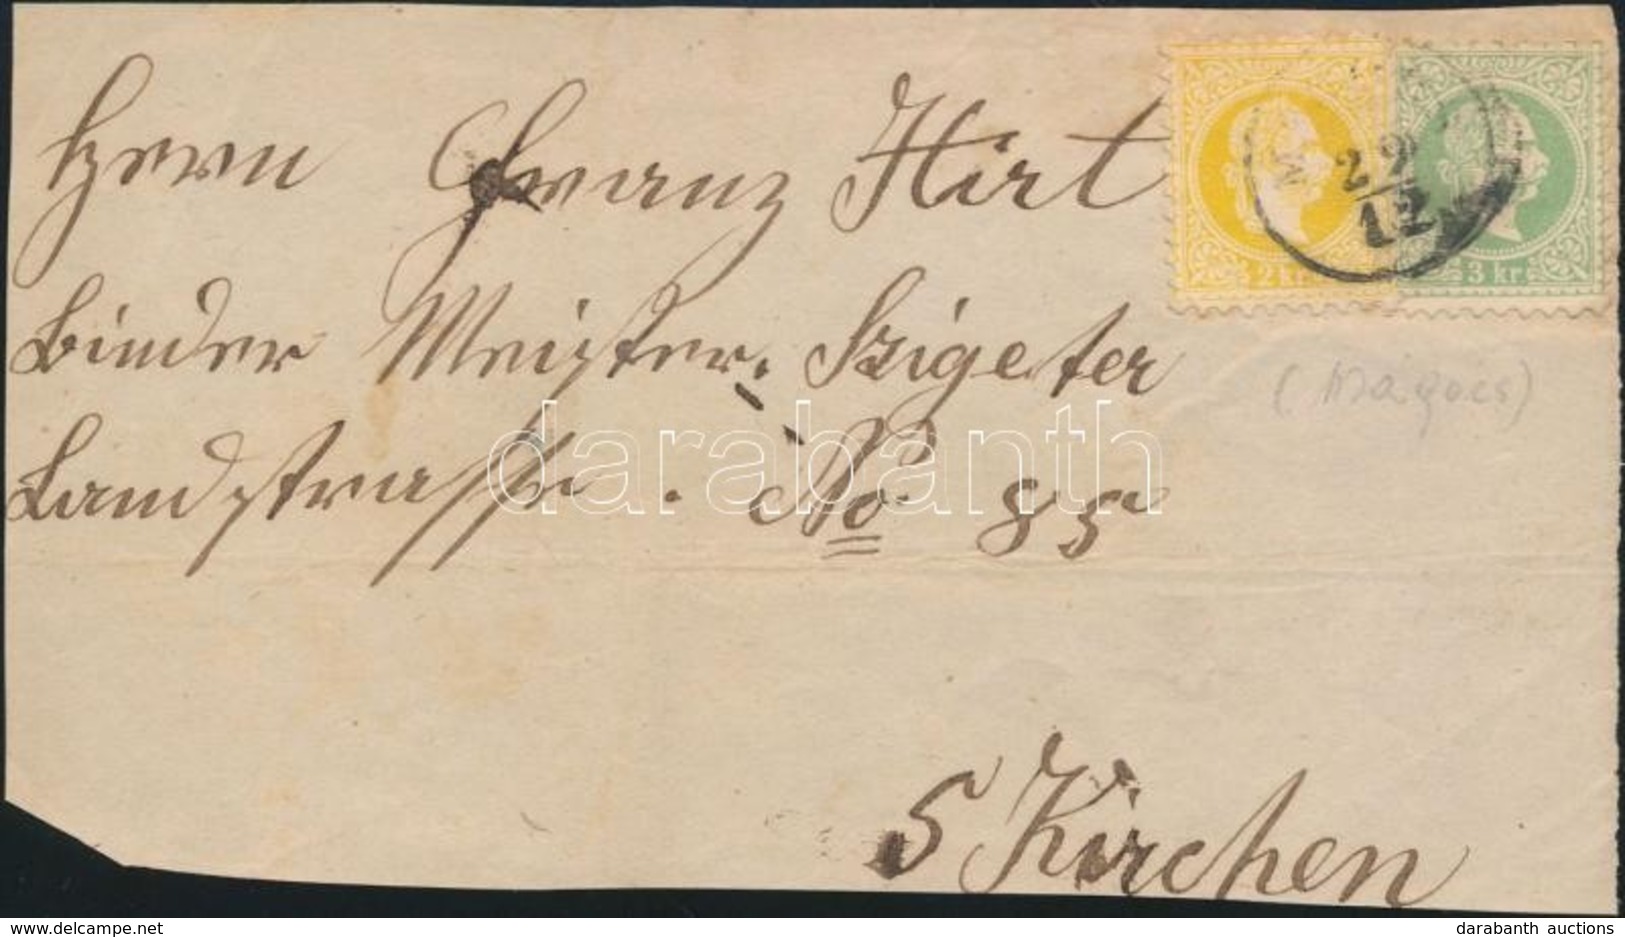 Herrn Franz Hirt
Binder Meister. Szigeter
Landstrasse. No 85
5 Kirchen
2 kr.
3 kr
22
12
(Mágocs)
darabanth
delcampe.net
darabanth auctions